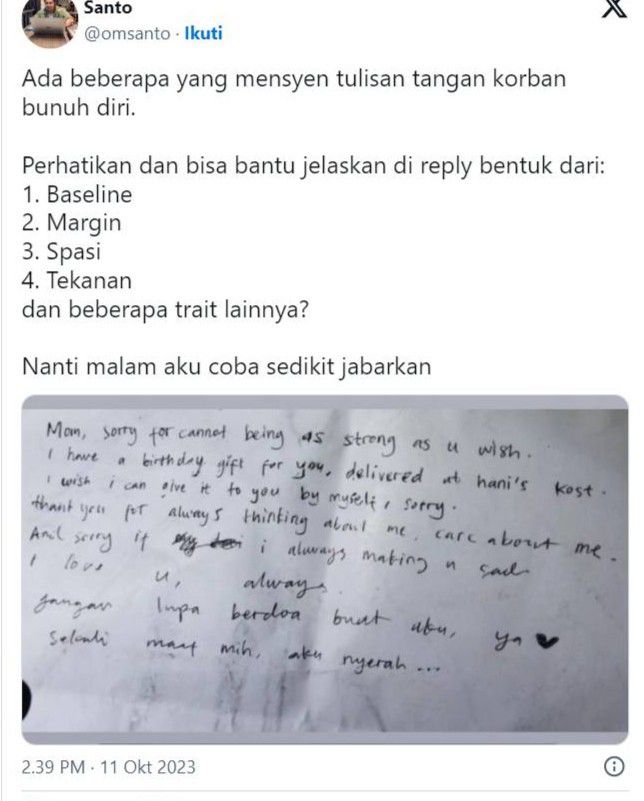 Santo
@omsanto · Ikuti
Ada beberapa yang mensyen tulisan tangan korban
bunuh diri.
Perhatikan dan bisa bantu jelaskan di reply bentuk dari:
1. Baseline
2. Margin
3. Spasi
4. Tekanan
dan beberapa trait lainnya?
Nanti malam aku coba sedikit jabarkan
Mom, sorry for cannot being as strong as u wish.
I have a birthday gift for you, delivered at hani's kost.
I wish i can give it to you by myself, sorry.
thank you for always thinking about me, care about me.
And sorry if i always making u sad
I love u, always.
Jangan lupa berdoa buat aku, ya ♥
maaf mih, aku nyerah ...
2.39 PM · 11 Okt 2023